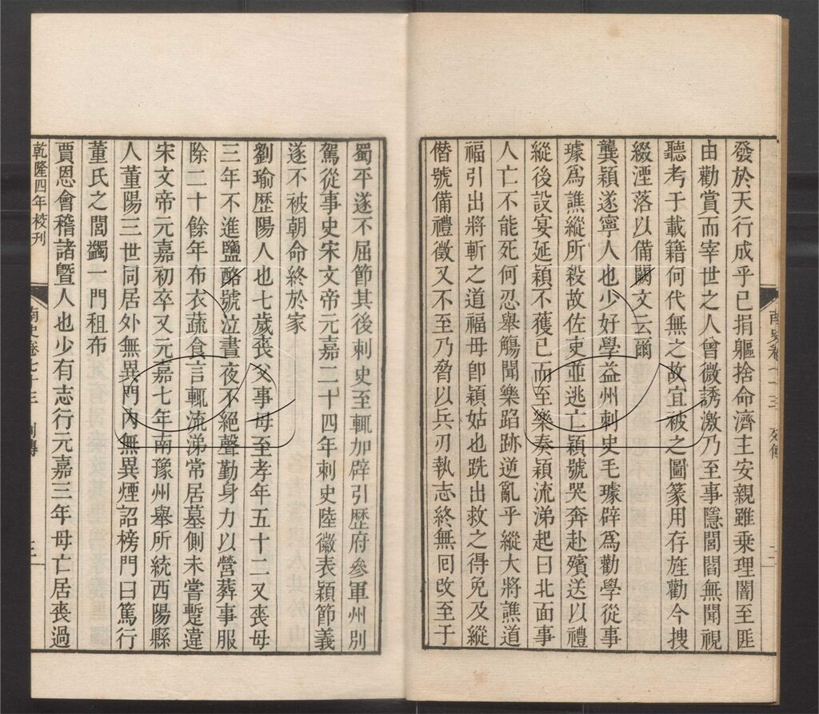 發於天行成乎已捐軀捨命濟主安親雖乘理闇至匪
由勸賞而宰世之人曾微誘激乃至事隱閭閻無聞視
聽考于載籍何代無之故宜被之圖篆用存旌勸今搜
綴湮落以備闕文云爾
龔穎遂寧人也少好學益州刺史毛璩辟爲勸學從事
璩爲譙縱所殺故佐吏並逃亡穎號哭奔赴殯送以禮
縱後設宴延穎不獲已而至樂奏穎流涕起曰北面事
人亡不能死何忍舉觴聞樂蹈跡逆亂乎縱大將譙道
福引出將斬之道福母卽穎姑也跣出救之得免及縱
僭號備禮徵又不至乃脅以兵刃執志終無回改至于
蜀平遂不屈節其後刺史至輒加辟引歷府參軍州別
駕從事史宋文帝元嘉二十四年刺史陸徽表穎節義
遂不被朝命終於家
劉瑜歷陽人也七歲喪父事母至孝年五十二又喪母
三年不進鹽酪號泣晝夜不絕聲勤身力以營葬事服
除二十餘年布衣蔬食言輒流涕常居墓側未嘗蹔違
宋文帝元嘉初卒又元嘉七年南豫州舉所統西陽縣
人董陽三世同居外無異門內無異煙詔榜門曰篤行
董氏之閭蠲一門租布
賈恩會稽諸曁人也少有志行元嘉三年母亡居喪過
乾隆四年校刊
南史卷七十三 列傳 三